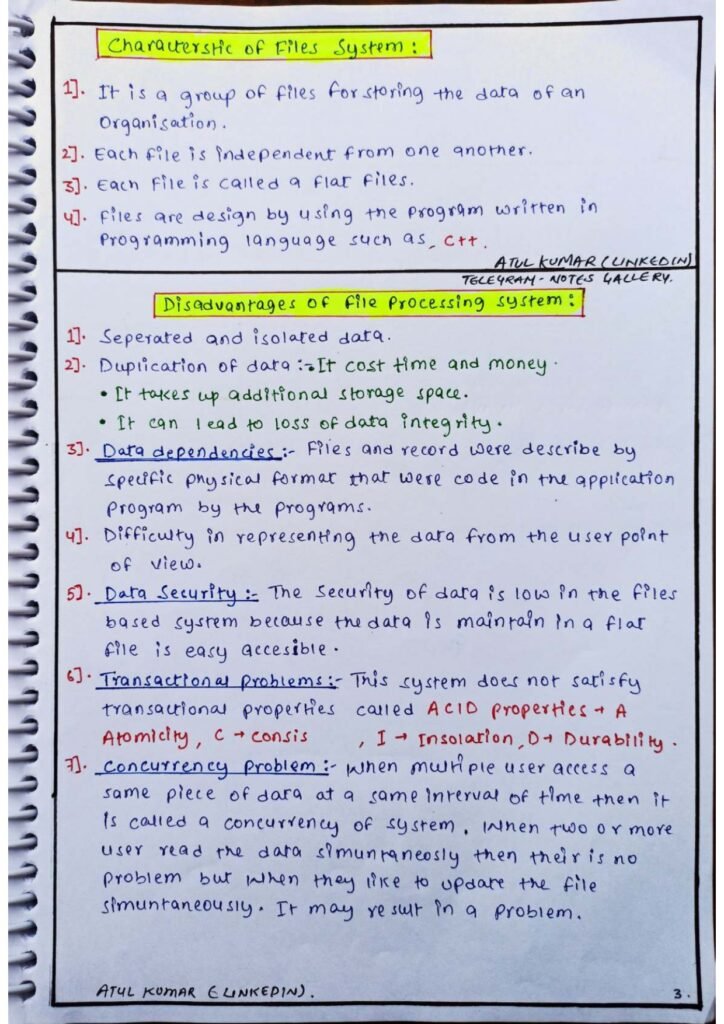 Characterstic of Files System :
1]. It is a group of files for storing the data of an
Organisation.
2]. Each file is independent from one another.
3]. Each File is called a flat files.
4]. Files are design by using the program written in
Programming language such as, C++.
ATUL KUMAR (LINKEDIN)
TELEGRAM - NOTES GALLERY.
Disadvantages of file Processing system :
1]. Seperated and isolated data.
2]. Duplication of data :- • It cost time and money.
• It takes up additional storage space.
• It can lead to loss of data integrity.
3]. Data dependencies :- Files and record were describe by
specific physical format that were code in the application
program by the programs.
4]. Difficulty in representing the data from the user point
of view.
5]. Data Security :- The Security of data is low in the files
based system because the data is maintain in a flat
file is easy accesible.
6]. Transactional problems :- This system does not satisfy
transactional properties called ACID properties → A
Atomicity, C → consis , I → Insolation, D → Durability.
7]. Concurrency problem :- When multiple user access a
same piece of data at a same interval of time then it
is called a concurrency of system. When two or more
user read the data simuntaneosly then their is no
problem but when they like to update the file
simuntaneously. It may result in a problem.
ATUL KUMAR (LINKEDIN).
3.